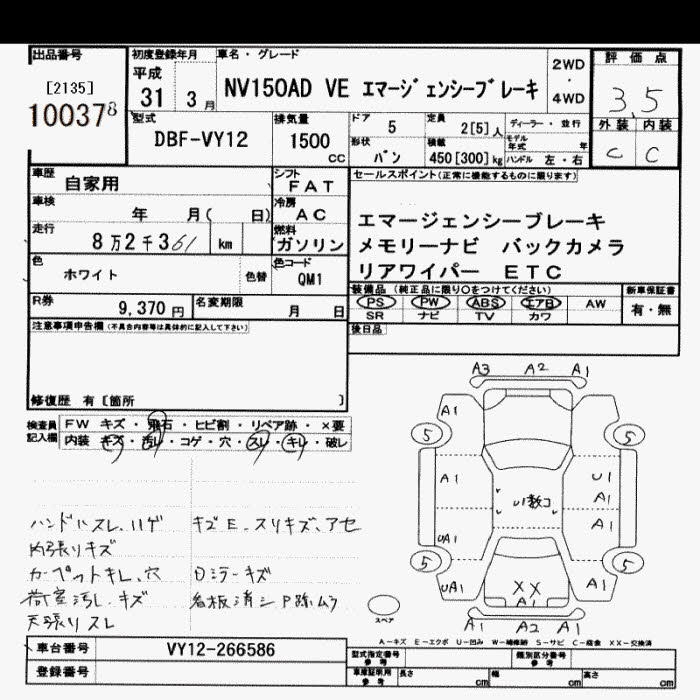 出品番号
[2135]
100378
初度登録年月
平成
31 3月
車名・グレード
NV150AD VE エマージェンシーブレーキ
2WD
・
4WD
評価点
3.5
型式
DBF-VY12
排気量
1500
cc
ドア
5
定員
2[5]人
ディーラー・並行
形状
バン
積載
450[300]kg
モデル年式 年
ハンドル 左・右
外装 内装
C C
車歴
自家用
シフト
FAT
セールスポイント(正常に機能するものに限ります)
車検
年 月( 日)
冷房
AC
エマージェンシーブレーキ
メモリーナビ バックカメラ
リアワイパー ETC
走行
8万2千361 km
燃料
ガソリン
色
ホワイト
色替
色コード
QM1
装備品(純正品に限り〇をつけてください)
PS PW ABS エアB AW
SR ナビ TV カワ
新車保証書
有・無
R券
9,370円
名変期限
月 日
後日品
注意事項申告欄(不具合内容等は具体的に記入して下さい)
修復歴 有〔箇所 〕
検査員記入欄
FW キズ・飛石・ヒビ割・リペア跡・×要
内装 キズ・汚レ・コゲ・穴・スレ・キレ・破レ
ハンドルスレ、ハゲ
内張りキズ
カーペットキレ、穴
荷室汚レ、キズ
天張りスレ
キズE、スリキズ、アセ
Dミラーキズ
看板済シP跡ムラ
A3 A2 A1
A1
5 5
A1
U1数コ
U1
A1
UA1
A1
5 5
UA1
XX
A1
A1
スペア
A1 A2 A1
A-キズ E-エクボ U-凹み W-補修跡 S-サビ C-腐食 XX-交換済
車台番号
VY12-266586
登録番号
型式指定番号
参考
類別区分番号
参考
車庫証明用
参考
長さ cm
幅 cm
高さ cm